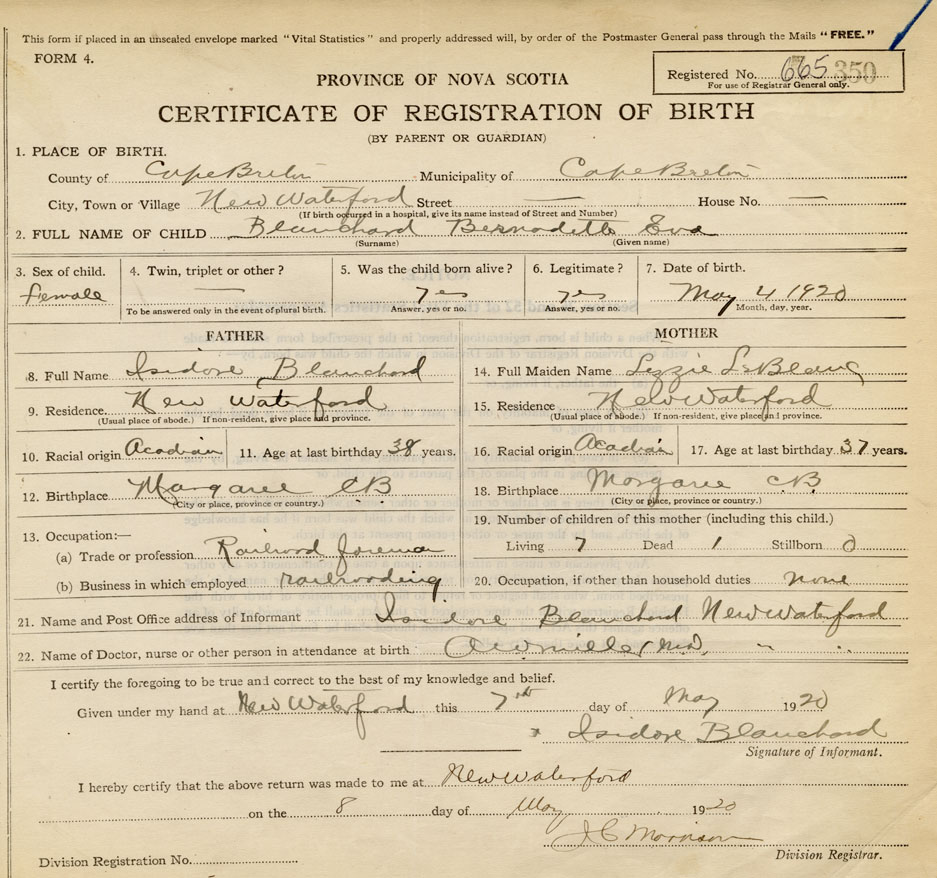 This form if placed in an unsealed envelope marked "Vital Statistics" and properly addressed will, by order of the Postmaster General pass through the Mails "FREE."
FORM 4.
Registered No. 665 350
For use of Registrar General only.
PROVINCE OF NOVA SCOTIA
CERTIFICATE OF REGISTRATION OF BIRTH
(BY PARENT OR GUARDIAN)
1. PLACE OF BIRTH.
County of Cape Breton Municipality of Cape Breton
City, Town or Village New Waterford Street — House No. —
(If birth occurred in a hospital, give its name instead of Street and Number)
2. FULL NAME OF CHILD Blanchard Bernadette Eva
(Surname) (Given name)
3. Sex of child. 4. Twin, triplet or other? 5. Was the child born alive? 6. Legitimate? 7. Date of birth.
female — yes yes May 4 1920
To be answered only in the event of plural birth. Answer, yes or no. Answer, yes or no. Month, day, year.
FATHER MOTHER
8. Full Name Isidore Blanchard 14. Full Maiden Name Lizzie LeBlanc
9. Residence New Waterford 15. Residence New Waterford
(Usual place of abode.) If non-resident, give place and province. (Usual place of abode.) If non-resident, give place and province.
10. Racial origin Acadian 11. Age at last birthday 38 years. 16. Racial origin Acadian 17. Age at last birthday 37 years.
12. Birthplace Margaree CB 18. Birthplace Margaree CB
(City or place, province or country.) (City or place, province or country.)
13. Occupation:— 19. Number of children of this mother (including this child.)
(a) Trade or profession Railroad foreman Living 7 Dead 1 Stillborn 0
(b) Business in which employed railroading 20. Occupation, if other than household duties none
21. Name and Post Office address of Informant Isidore Blanchard New Waterford
22. Name of Doctor, nurse or other person in attendance at birth MD.
I certify the foregoing to be true and correct to the best of my knowledge and belief.
Given under my hand at New Waterford this 7th day of May 1920
Isidore Blanchard
Signature of Informant.
I hereby certify that the above return was made to me at New Waterford
on the 8 day of May 1920
J C Morrison
Division Registrar.
Division Registration No.